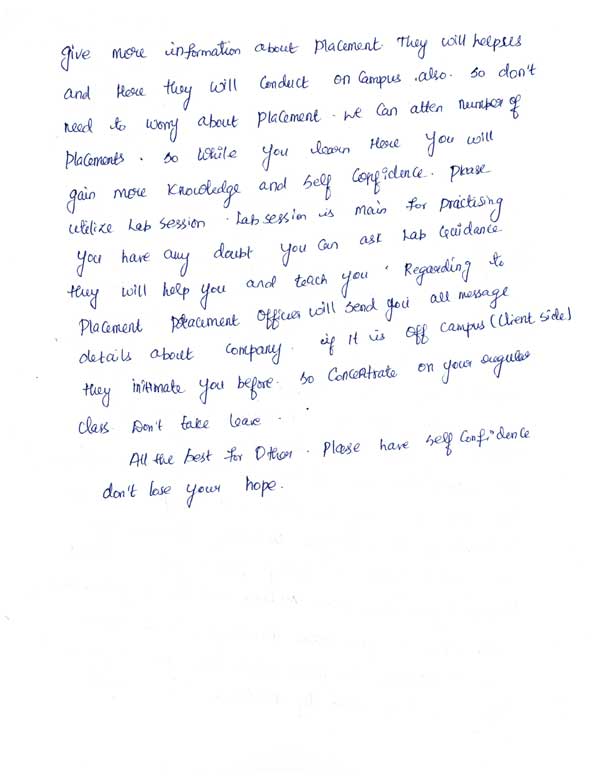 give more information about placement They will helps us
and Here they will Conduct on Campus also. so don't
need to worry about placement. we can atten number of
placements. so while you learn Here you will
gain more knowledge and self Confidence. Please
utilize Lab session. Lab session is main for practising
you have any doubt you can ask Lab Guidance
they will help you and teach you. Regarding to
Placement Placement Officer will send you all message
details about company. if It is Off campus (Client side)
they intimate you before. so Concentrate on your regular
class Don't take leave.
All the best for Other. Please have self Confidence
don't lose your hope.